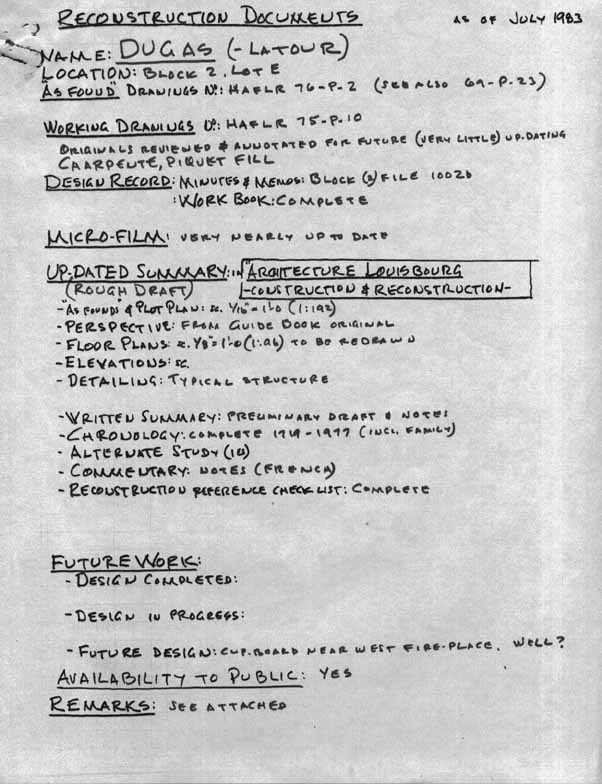 RECONSTRUCTION DOCUMENTS AS OF JULY 1983
NAME: DUGAS (-LATOUR)
LOCATION: BLOCK 2, LOT E
"AS FOUND" DRAWINGS No: HAFLR 76-P-2 (SEE ALSO 69-P-23)
WORKING DRAWINGS No: HAFLR 75-P-10
ORIGINALS REVIEWED & ANNOTATED FOR FUTURE (VERY LITTLE) UP-DATING
CHARPENTE, PIQUET FILL
DESIGN RECORD: MINUTES & MEMOS: BLOCK (2) FILE 1002b
: WORK BOOK: COMPLETE
MICRO-FILM: VERY NEARLY UP TO DATE
UP-DATED SUMMARY: in "ARCHITECTURE LOUISBOURG
(ROUGH DRAFT) -CONSTRUCTION & RECONSTRUCTION-
- "AS FOUNDS" & PLOT PLAN: sc. 1/16"=1'-0 (1:192)
- PERSPECTIVE: FROM GUIDE BOOK ORIGINAL
- FLOOR PLANS: sc. 1/8"=1'-0 (1:96) TO BE REDRAWN
- ELEVATIONS: sc.
- DETAILING: TYPICAL STRUCTURE
- WRITTEN SUMMARY: PRELIMINARY DRAFT & NOTES
- CHRONOLOGY: COMPLETE 1719-1977 (INCL. FAMILY)
- ALTERNATE STUDY
- COMMENTARY: NOTES (FRENCH)
- RECONSTRUCTION REFERENCE CHECK LIST: COMPLETE
FUTURE WORK:
- DESIGN COMPLETED:
- DESIGN IN PROGRESS:
- FUTURE DESIGN: CUP-BOARD NEAR WEST FIRE-PLACE. WELL?
AVAILABILITY TO PUBLIC: YES
REMARKS: SEE ATTACHED